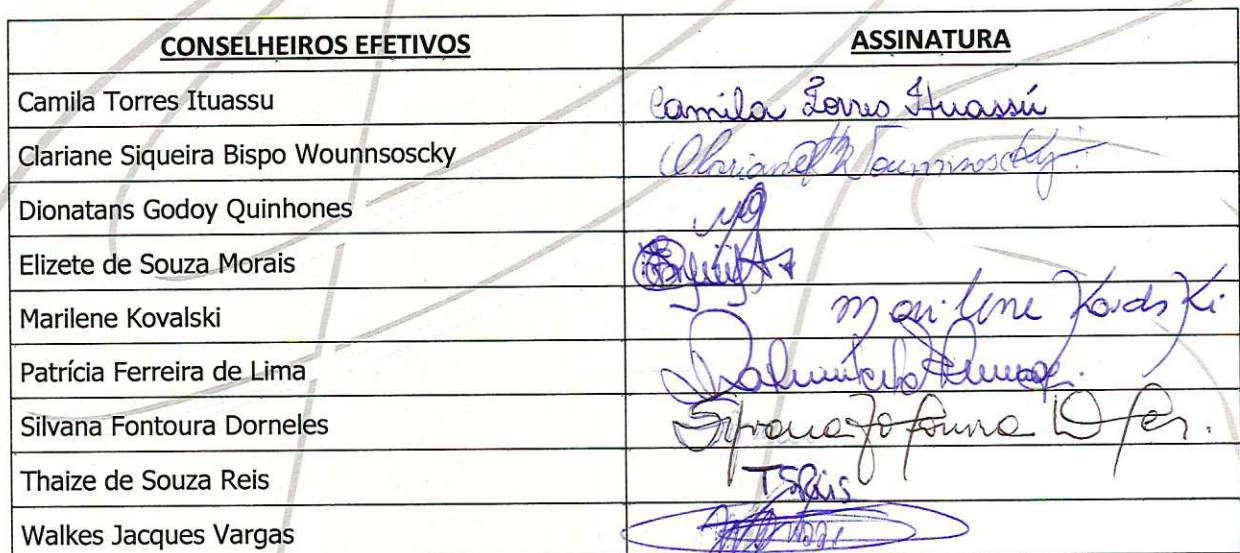 CONSELHEIROS EFETIVOS ASSINATURA
Camila Torres Ituassu Camila Torres Ituassú
Clariane Siqueira Bispo Wounnsoscky Clariane Wounnsoscky
Dionatans Godoy Quinhones
Elizete de Souza Morais
Marilene Kovalski Marilene Kovalski
Patrícia Ferreira de Lima
Silvana Fontoura Dorneles
Thaize de Souza Reis TSReis
Walkes Jacques Vargas